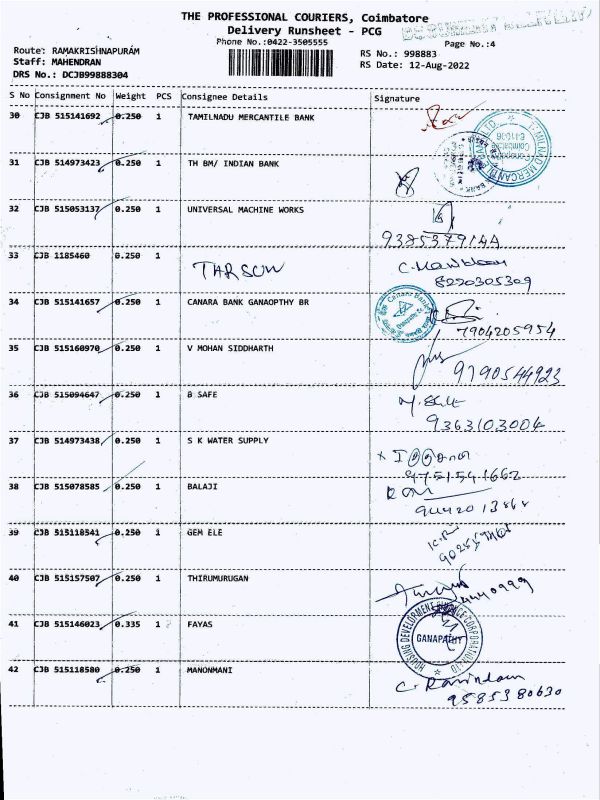 THE PROFESSIONAL COURIERS, Coimbatore
Delivery Runsheet - PCG
Phone No.:0422-3505555
Page No.:4
Route: RAMAKRISHNAPURAM
Staff: MAHENDRAN
DRS No.: DCJB99888304
RS No.: 998883
RS Date: 12-Aug-2022
S No Consignment No Weight PCS Consignee Details Signature
30 CJB 515141692 0.250 1 TAMILNADU MERCANTILE BANK
31 CJB 514973423 0.250 1 TH BM/ INDIAN BANK
32 CJB 515053137 0.250 1 UNIVERSAL MACHINE WORKS
33 CJB 1185460 0.250 1 TARSON
8220305309
34 CJB 515141657 0.250 1 CANARA BANK GANAOPTHY BR
7904205954
35 CJB 515160970 0.250 1 V MOHAN SIDDHARTH
9790544923
36 CJB 515094647 0.250 1 B SAFE
9363103004
37 CJB 514973438 0.250 1 S K WATER SUPPLY
9751541662
38 CJB 515078585 0.250 1 BALAJI
9442013868
39 CJB 515118541 0.250 1 GEM ELE
40 CJB 515157507 0.250 1 THIRUMURUGAN
41 CJB 515146023 0.335 1 FAYAS
HOUSING DEVELOPMENT FINANCE CORPORATION LTD
GANAPATHY
42 CJB 515118580 0.250 1 MANONMANI
C. Ravindran
9585380630